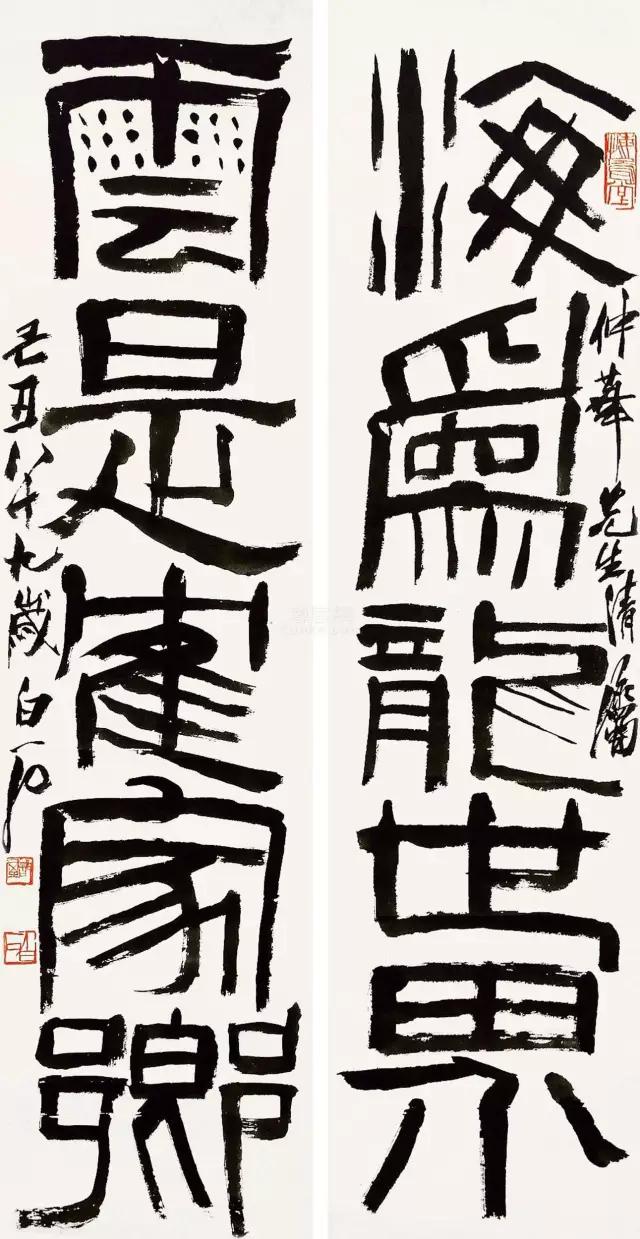 海爲龍世界
仲華先生清屬
雲是隺家鄉
己丑八十九歲白石